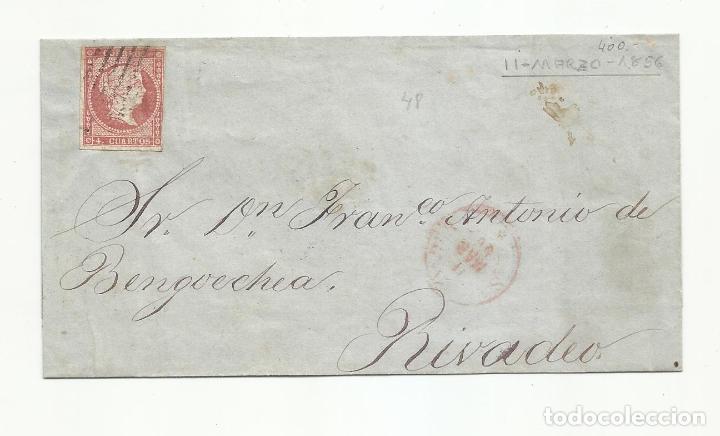 400.-
11-MARZO-1856
48
4. CUARTOS
Sr. Dn Franco Antonio de
Bengoechea.
Rivadeo.
todocoleccion.net